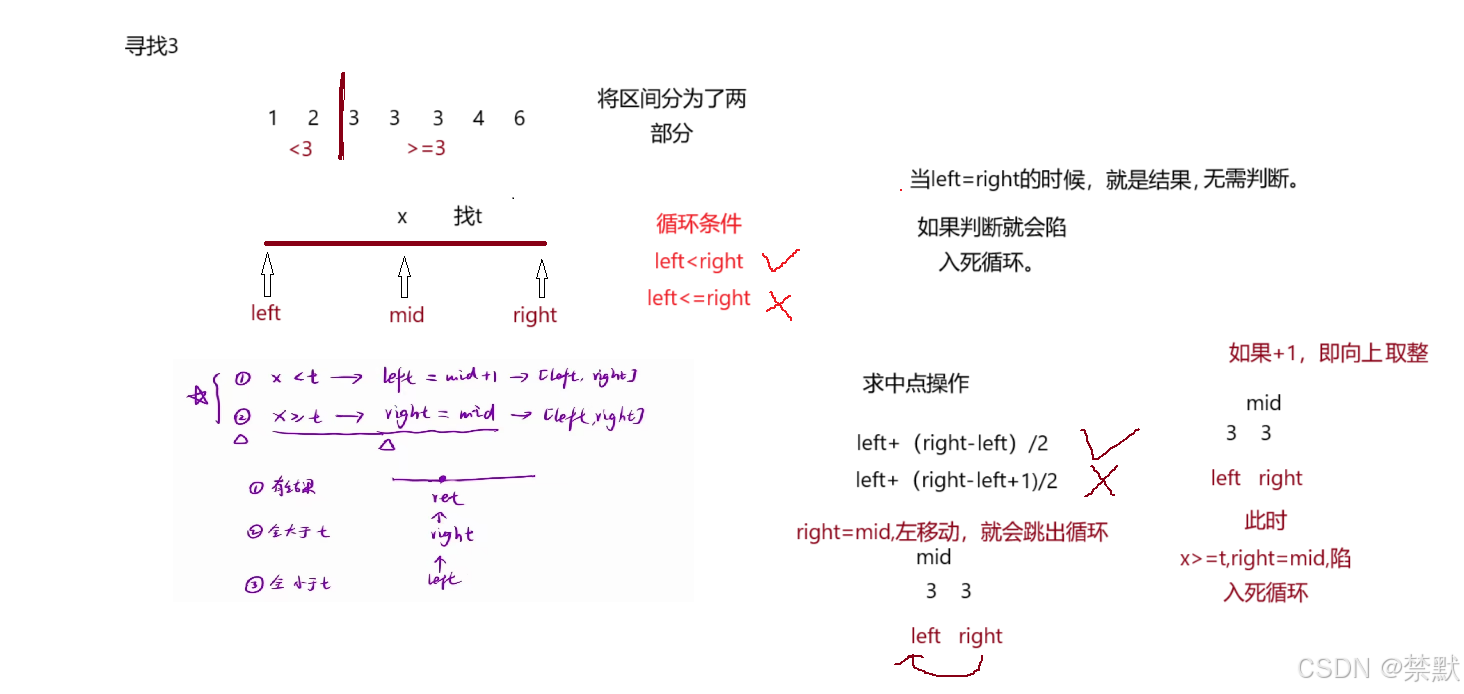 寻找3
1 2 3 3 3 4 6
<3 >=3
将区间分为了两
部分
x 找t
left mid right
循环条件
left<right
left<=right
当left=right的时候，就是结果，无需判断。
如果判断就会陷
入死循环。
① x<t → left = mid+1 → [left, right]
② x≥t → right = mid → [left, right]
① 有结果
② 全大于t
③ 全小于t
ret
right
left
求中点操作
left+（right-left）/2
left+（right-left+1)/2
right=mid,左移动，就会跳出循环
mid
3 3
left right
如果+1，即向上取整
mid
3 3
left right
此时
x>=t,right=mid,陷
入死循环
CSDN @禁默